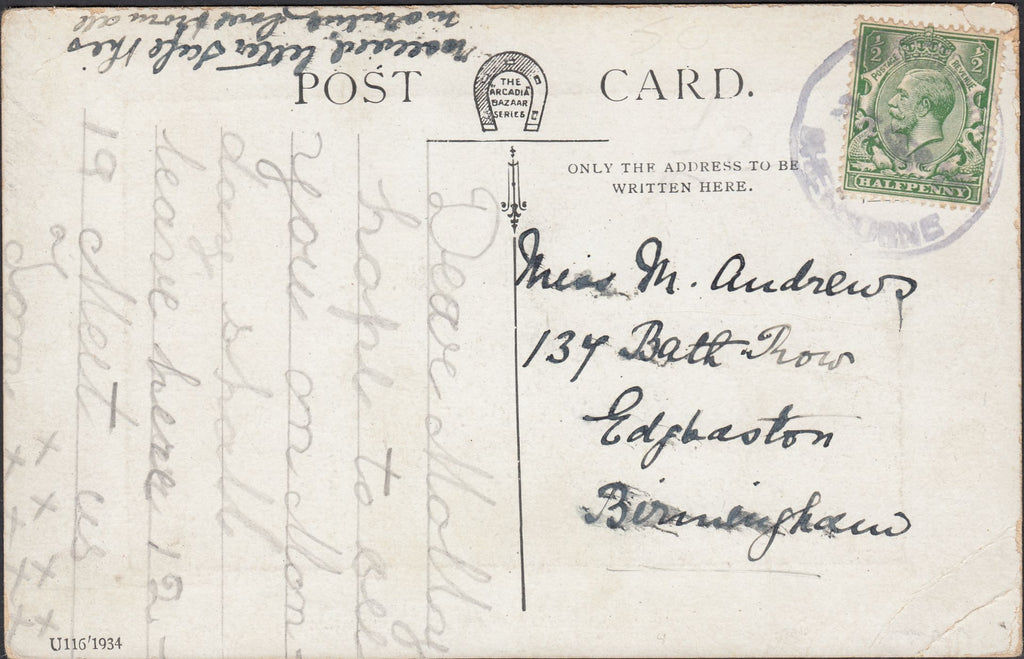 POST CARD.
THE
ARCADIA
BAZAAR
SERIES
ONLY THE ADDRESS TO BE
WRITTEN HERE.
1/2 1/2
POSTAGE REVENUE
HALFPENNY
Miss M. Andrews
137 Bath Row
Edgbaston
Birmingham
Dear Molly
hope to see
you on Mon
day shall
leave here 12-
19 Meet us
x x x x
x x x x
received letter safe this
morning love from all
U116'1934